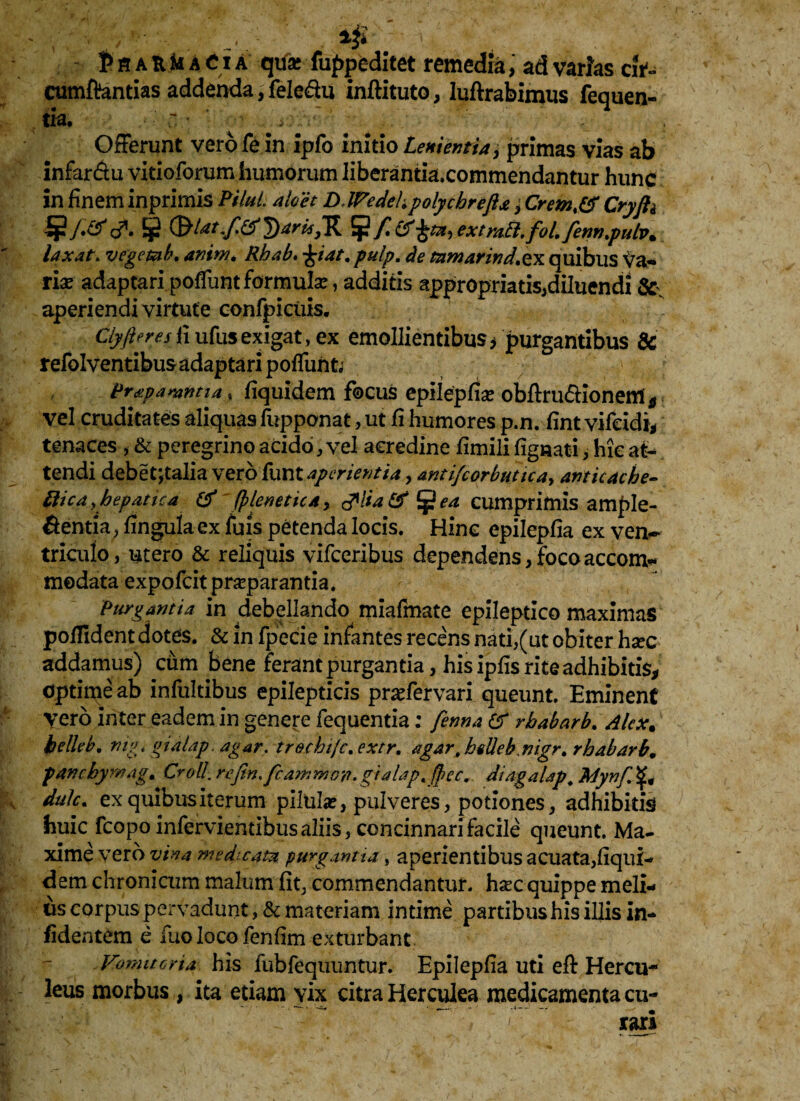 PHARMACIA quæ suppeditet remedia, ad varias cir-
cumstantias addenda, selectu instituto, lustrabimus sequen-
tia.
Offerunt vero se in ipso initio Lenientia, primas vias ab
infarctu vitiosorum humorum liberantia. commendantur hunc
in finem inprimis Pilul. aloët D. Wedel. polychrestæ, Crem. & Cryst.
laxat. vegetab. anim. Rhab. pulp. de tamarind. ex quibus va-
riæ adaptari possunt formulæ, additis appropriatis, diluendi &
aperiendi virtute conspicuis.
Clysteres si usus exigat, ex emollientibus, purgantibus &
resolventibus adaptari possunt.
Præparantia, siquidem focus epilepsiæ obstructionem,
vel cruditates aliquas supponat, ut si humores p.n. sint viscidi,
tenaces, & peregrino acido, vel acredine simili signati, hic at-
tendi debet; talia vero sunt aperientia, antiscorbutica, anticache-
ctica, hepatica & splenetica, ♂lia & ☿ea cumprimis ample-
ctentia, singula ex suis petenda locis. Hinc epilepsia ex ven-
triculo, utero & reliquis visceribus dependens, foco accom-
modata exposcit præparantia.
Purgantia in debellando miasmate epileptico maximas
possident dotes. & in specie infantes recens nati, (ut obiter hæc
addamus) cum bene ferant purgantia, his ipsis rite adhibitis,
optime ab insultibus epilepticis præservari queunt. Eminent
vero inter eadem in genere sequentia: senna & rhabarb. Alex.
helleb. nig. gialap. agar. trochisc. extr. agar. helleb. nigr. rhabarb.
panchymag. Croll. resin. scammon. gialap. spec. diagalap. Myns. ☿.
dulc. ex quibus iterum pilulæ, pulveres, potiones, adhibitis
huic scopo inservientibus aliis, concinnari facile queunt. Ma-
xime vero vina medicata purgantia, aperientibus acuata, siqui-
dem chronicum malum sit, commendantur. hæc quippe meli-
us corpus pervadunt, & materiam intime partibus his illis in-
sidentem e suo loco sensim exturbant.
Vomitoria his subsequuntur. Epilepsia uti est Hercu-
leus morbus, ita etiam vix citra Herculea medicamenta cu-
rari